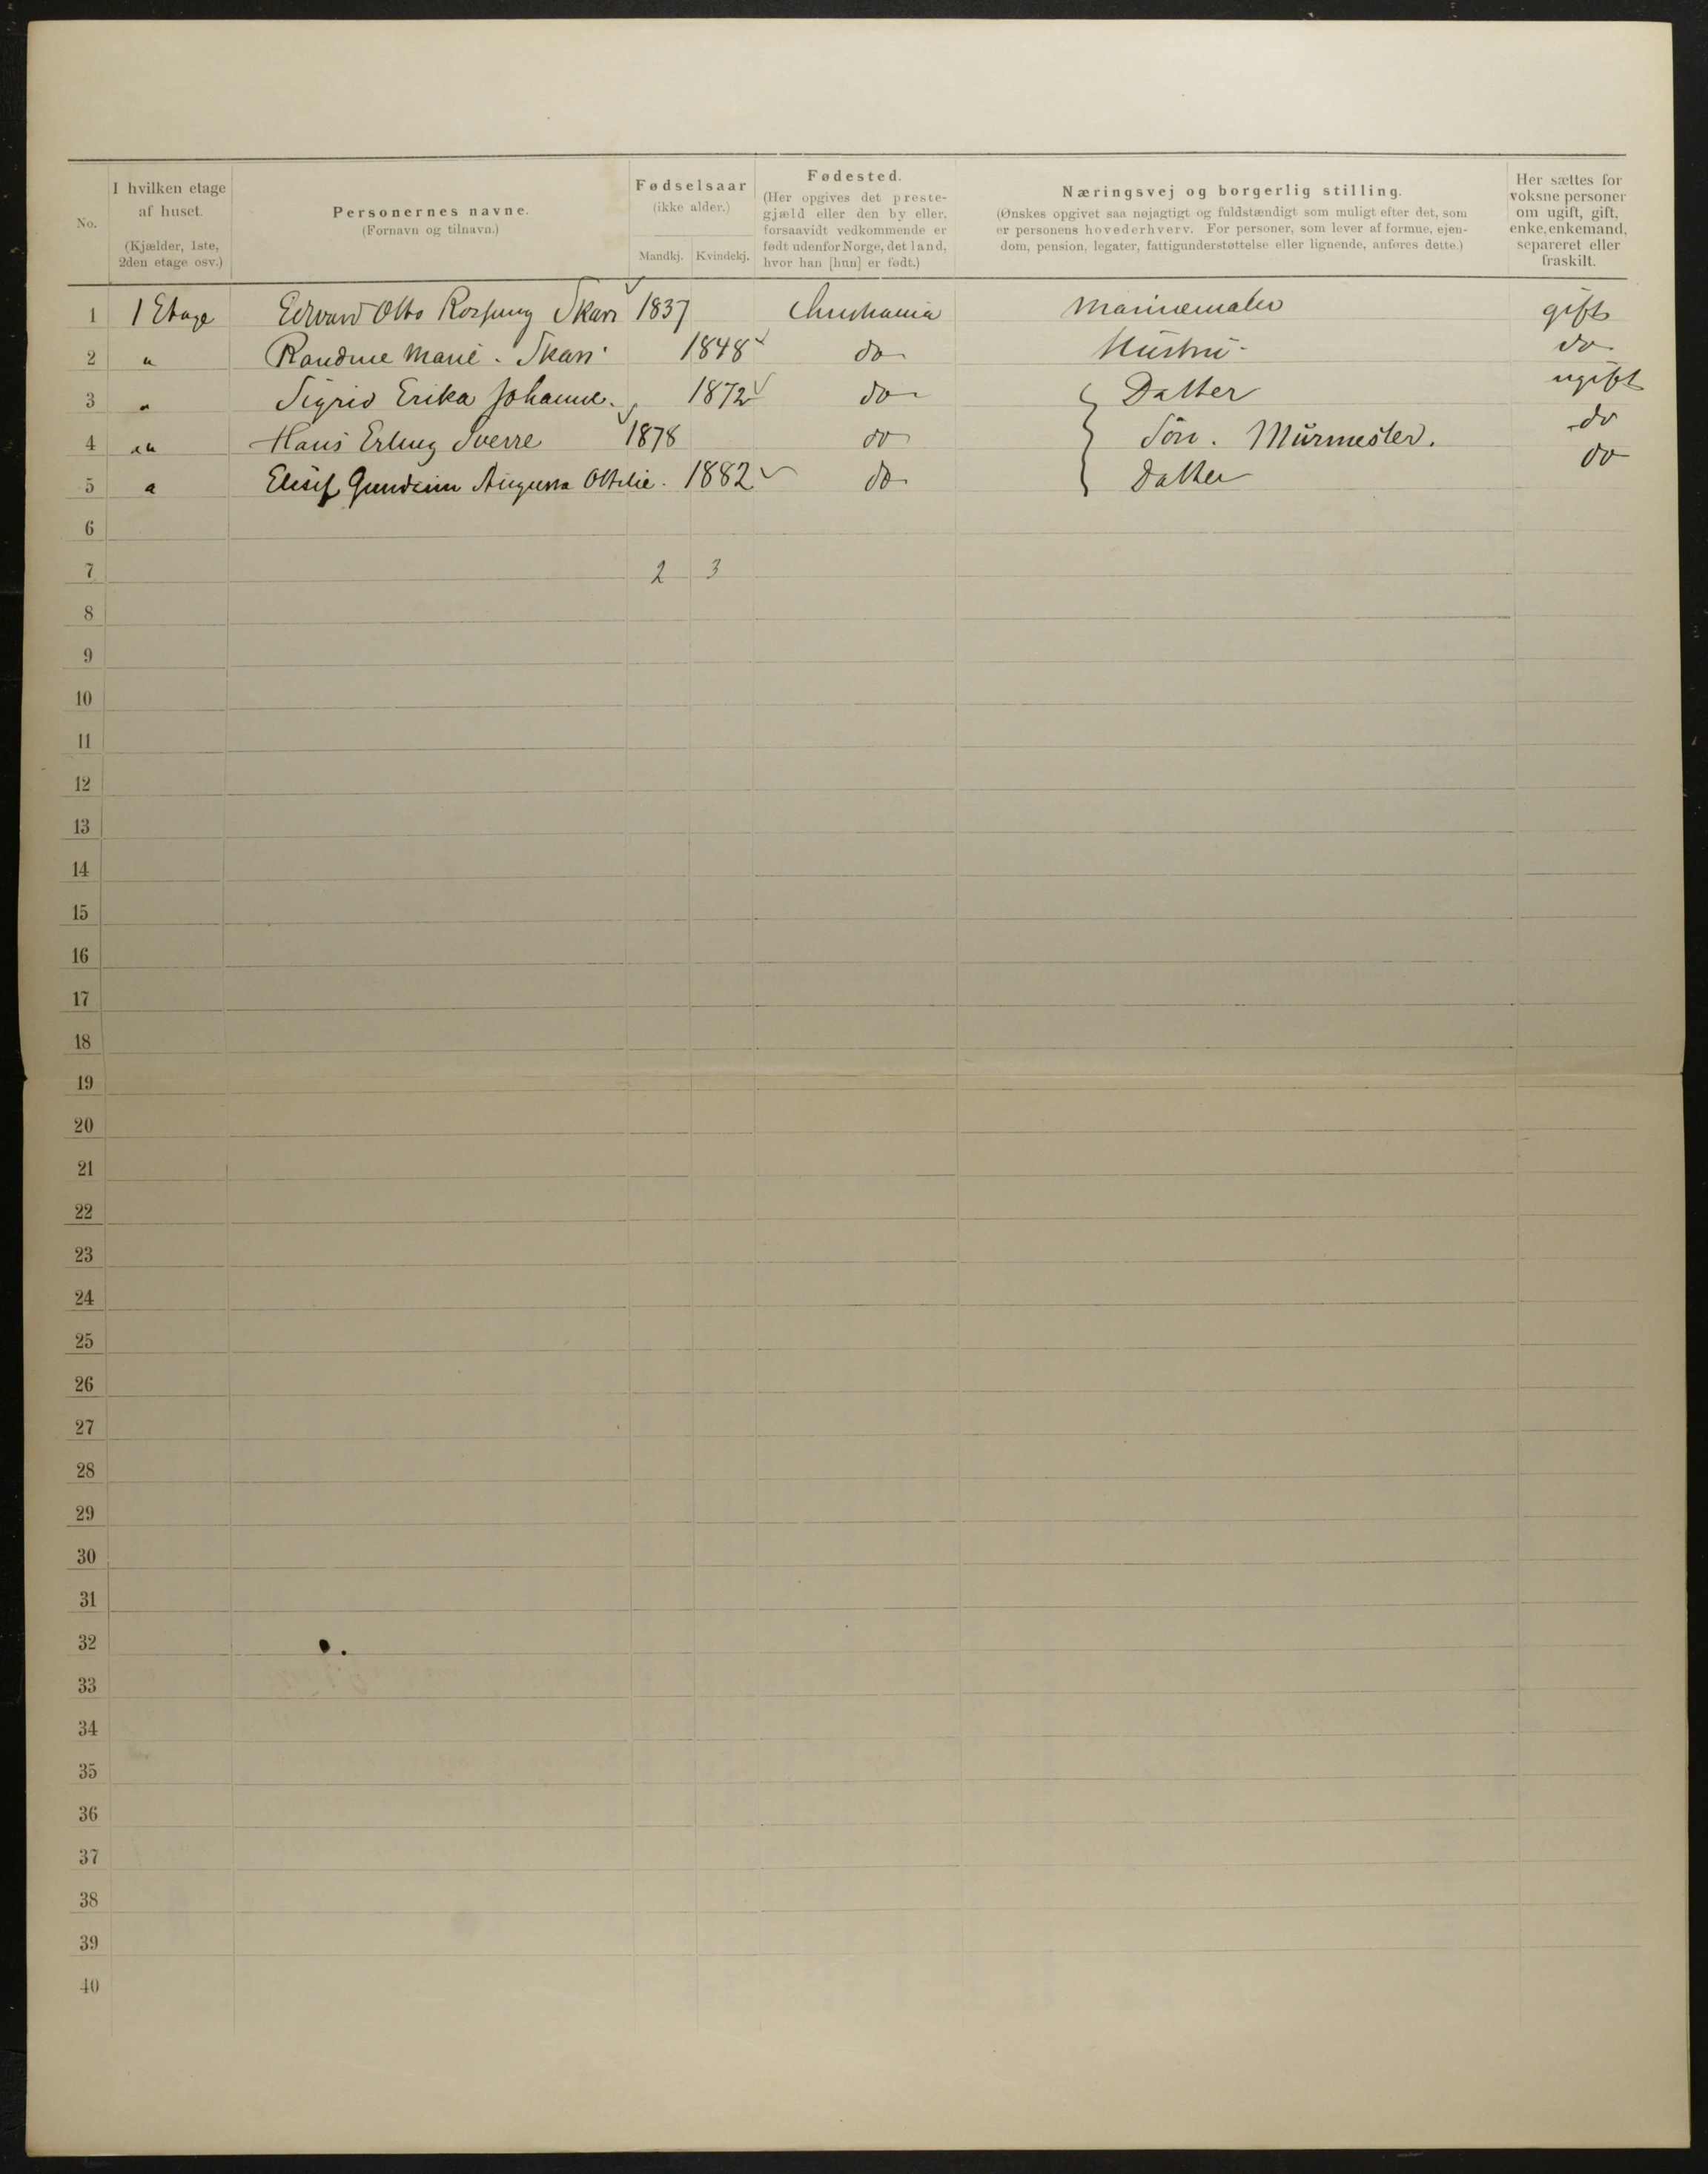 No.
I hvilken etage
af huset.
(Kjælder, 1ste,
2den etage osv.)
Personernes navne.
(Fornavn og tilnavn.)
Fødselsaar
(ikke alder.)
Mandkj. Kvindekj.
Fødested.
(Her opgives det preste-
gjæld eller den by eller,
forsaavidt vedkommende er
født udenfor Norge, det land,
hvor han [hun] er født.)
Næringsvej og borgerlig stilling.
(Ønskes opgivet saa nøjagtigt og fuldstændigt som muligt efter det, som
er personens hovederhverv. For personer, som lever af formue, ejen-
dom, pension, legater, fattigunderstøttelse eller lignende, anføres dette.)
Her sættes for
voksne personer
om ugift, gift,
enke, enkemand,
separeret eller
fraskilt.
1 1 Etage Edvard Otto Skari 1837 Christiania Marinemaler gift
2 " Randine Marie. Skari 1848 do Hustru do
3 " Sigrid Erika Johanne. 1872 do Datter ugift
4 " Hans Erling Sverre 1878 do Sön. Murmester. do
5 " Elisif Augusta Ottilie. 1882 do Datter do
6
7 2 3
8
9
10
11
12
13
14
15
16
17
18
19
20
21
22
23
24
25
26
27
28
29
30
31
32
33
34
35
36
37
38
39
40